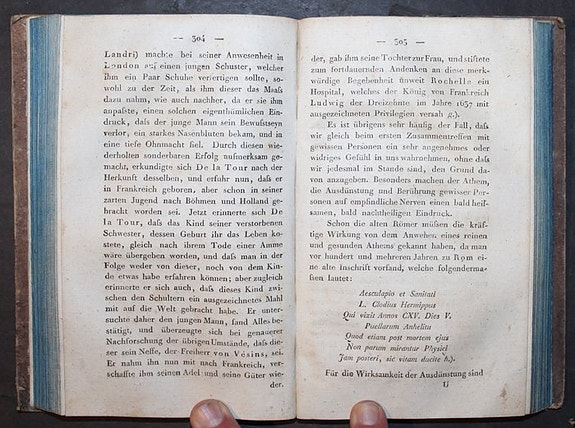 — 304 —
Landri) machte bei seiner Anwesenheit in
London auf einen jungen Schuster, welcher
ihm ein Paar Schuhe verfertigen sollte, so-
wohl zu der Zeit, als ihm dieser das Maaſs
dazu nahm, wie auch nachher, da er sie ihm
anpaſste, einen solchen eigenthümlichen Ein-
druck, daſs der junge Mann sein Bewuſstseyn
verlor, ein starkes Nasenbluten bekam, und in
eine tiefe Ohnmacht fiel. Durch diesen wie-
derholten sonderbaren Erfolg aufmerksam ge-
macht, erkundigte sich De la Tour nach der
Herkunft desselben, und erfuhr nun, daſs er
in Frankreich geboren, aber schon in seiner
zarten Jugend nach Böhmen und Holland ge-
bracht worden sei. Jetzt erinnerte sich De
la Tour, daſs das Kind seiner verstorbenen
Schwester, dessen Geburt ihr das Leben ko-
stete, gleich nach ihrem Tode einer Amme
wäre übergeben worden, und daſs man in der
Folge weder von dieser, noch von dem Kin-
de etwas habe erfahren können; aber zugleich
erinnerte er sich auch, daſs dieses Kind zwi-
schen den Schultern ein ausgezeichnetes Mahl
mit auf die Welt gebracht habe. Er unter-
suchte daher den jungen Mann, fand Alles be-
stätigt, und überzeugte sich bei genauerer
Nachforschung der übrigen Umstände, daſs die-
ser sein Neffe, der Freiherr von Vésins, sei.
Er nahm ihn nun mit nach Frankreich, ver-
schaffte ihm seinen Adel und seine Güter wie-
der,
— 305 —
der, gab ihm seine Tochter zur Frau, und stiftete
zum fortdauernden Andenken an diese merk-
würdige Begebenheit unweit Rochelle ein
Hospital, welches der König von Frankreich
Ludwig der Dreizehnte im Jahre 1637 mit
ausgezeichneten Privilegien versah g.).
Es ist übrigens sehr häufig der Fall, daſs
wir gleich beim ersten Zusammentreffen mit
gewissen Personen ein sehr angenehmes oder
widriges Gefühl in uns wahrnehmen, ohne daſs
wir jedesmal im Stande sind, den Grund da-
von anzugeben. Besonders machen der Athem,
die Ausdünstung und Berührung gewisser Per-
sonen auf empfindliche Nerven einen bald heil-
samen, bald nachtheiligen Eindruck.
Schon die alten Römer müſsen die kräf-
tige Wirkung von dem Anwehen eines reinen
und gesunden Athems gekannt haben, da man
vor hundert und mehreren Jahren zu Rom ei-
ne alte Inschrift vorfand, welche folgenderma-
ſsen lautet:
Aesculapio et Sanitati
L. Clodius Hermippus
Qui vixit Annos CXV. Dies V.
Puellarum Anhelitu
Quod etiam post mortem ejus
Non parum mirantur Physici
Jam posteri, sic vitam ducite h.).
Für die Wirksamkeit der Ausdünstung sind
U